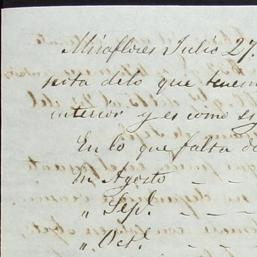 Miraflores Julio 27.
sita delo que tenem
interior y es como si
En lo que falta d
In Agosto — —
" Sepb. — —
" Octb. —